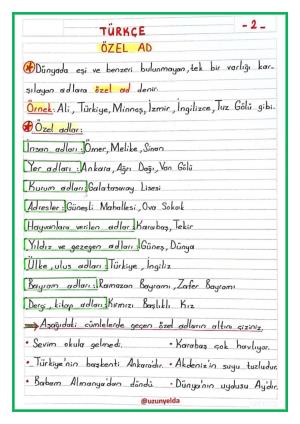 TÜRKÇE
- 2 -
ÖZEL AD
Dünyada eşi ve benzeri bulunmayan, tek bir varlığı kar-
şılayan adlara özel ad denir.
Örnek: Ali, Türkiye, Minnoş, İzmir, İngilizce, Tuz Gölü gibi.
Özel adlar:
İnsan adları: Ömer, Melike, Sinan
Yer adları: Ankara, Ağrı Dağı, Van Gölü
Kurum adları: Galatasaray Lisesi
Adresler: Güneşli Mahallesi, Ova Sokak
Hayvanlara verilen adlar: Karabaş, Tekir
Yıldız ve gezegen adları: Güneş, Dünya
Ülke, ulus adları: Türkiye, İngiliz
Bayram adları: Ramazan Bayramı, Zafer Bayramı
Dergi, kitap adları: Kırmızı Başlıklı Kız
Aşağıdaki cümlelerde geçen özel adların altını çiziniz.
• Sevim okula gelmedi.
• Karabaş çok havlıyor.
• Türkiye'nin başkenti Ankara'dır.
• Akdeniz'in suyu tuzludur.
• Babam Almanya'dan döndü.
• Dünya'nın uydusu Ay'dır.
@uzunyelda